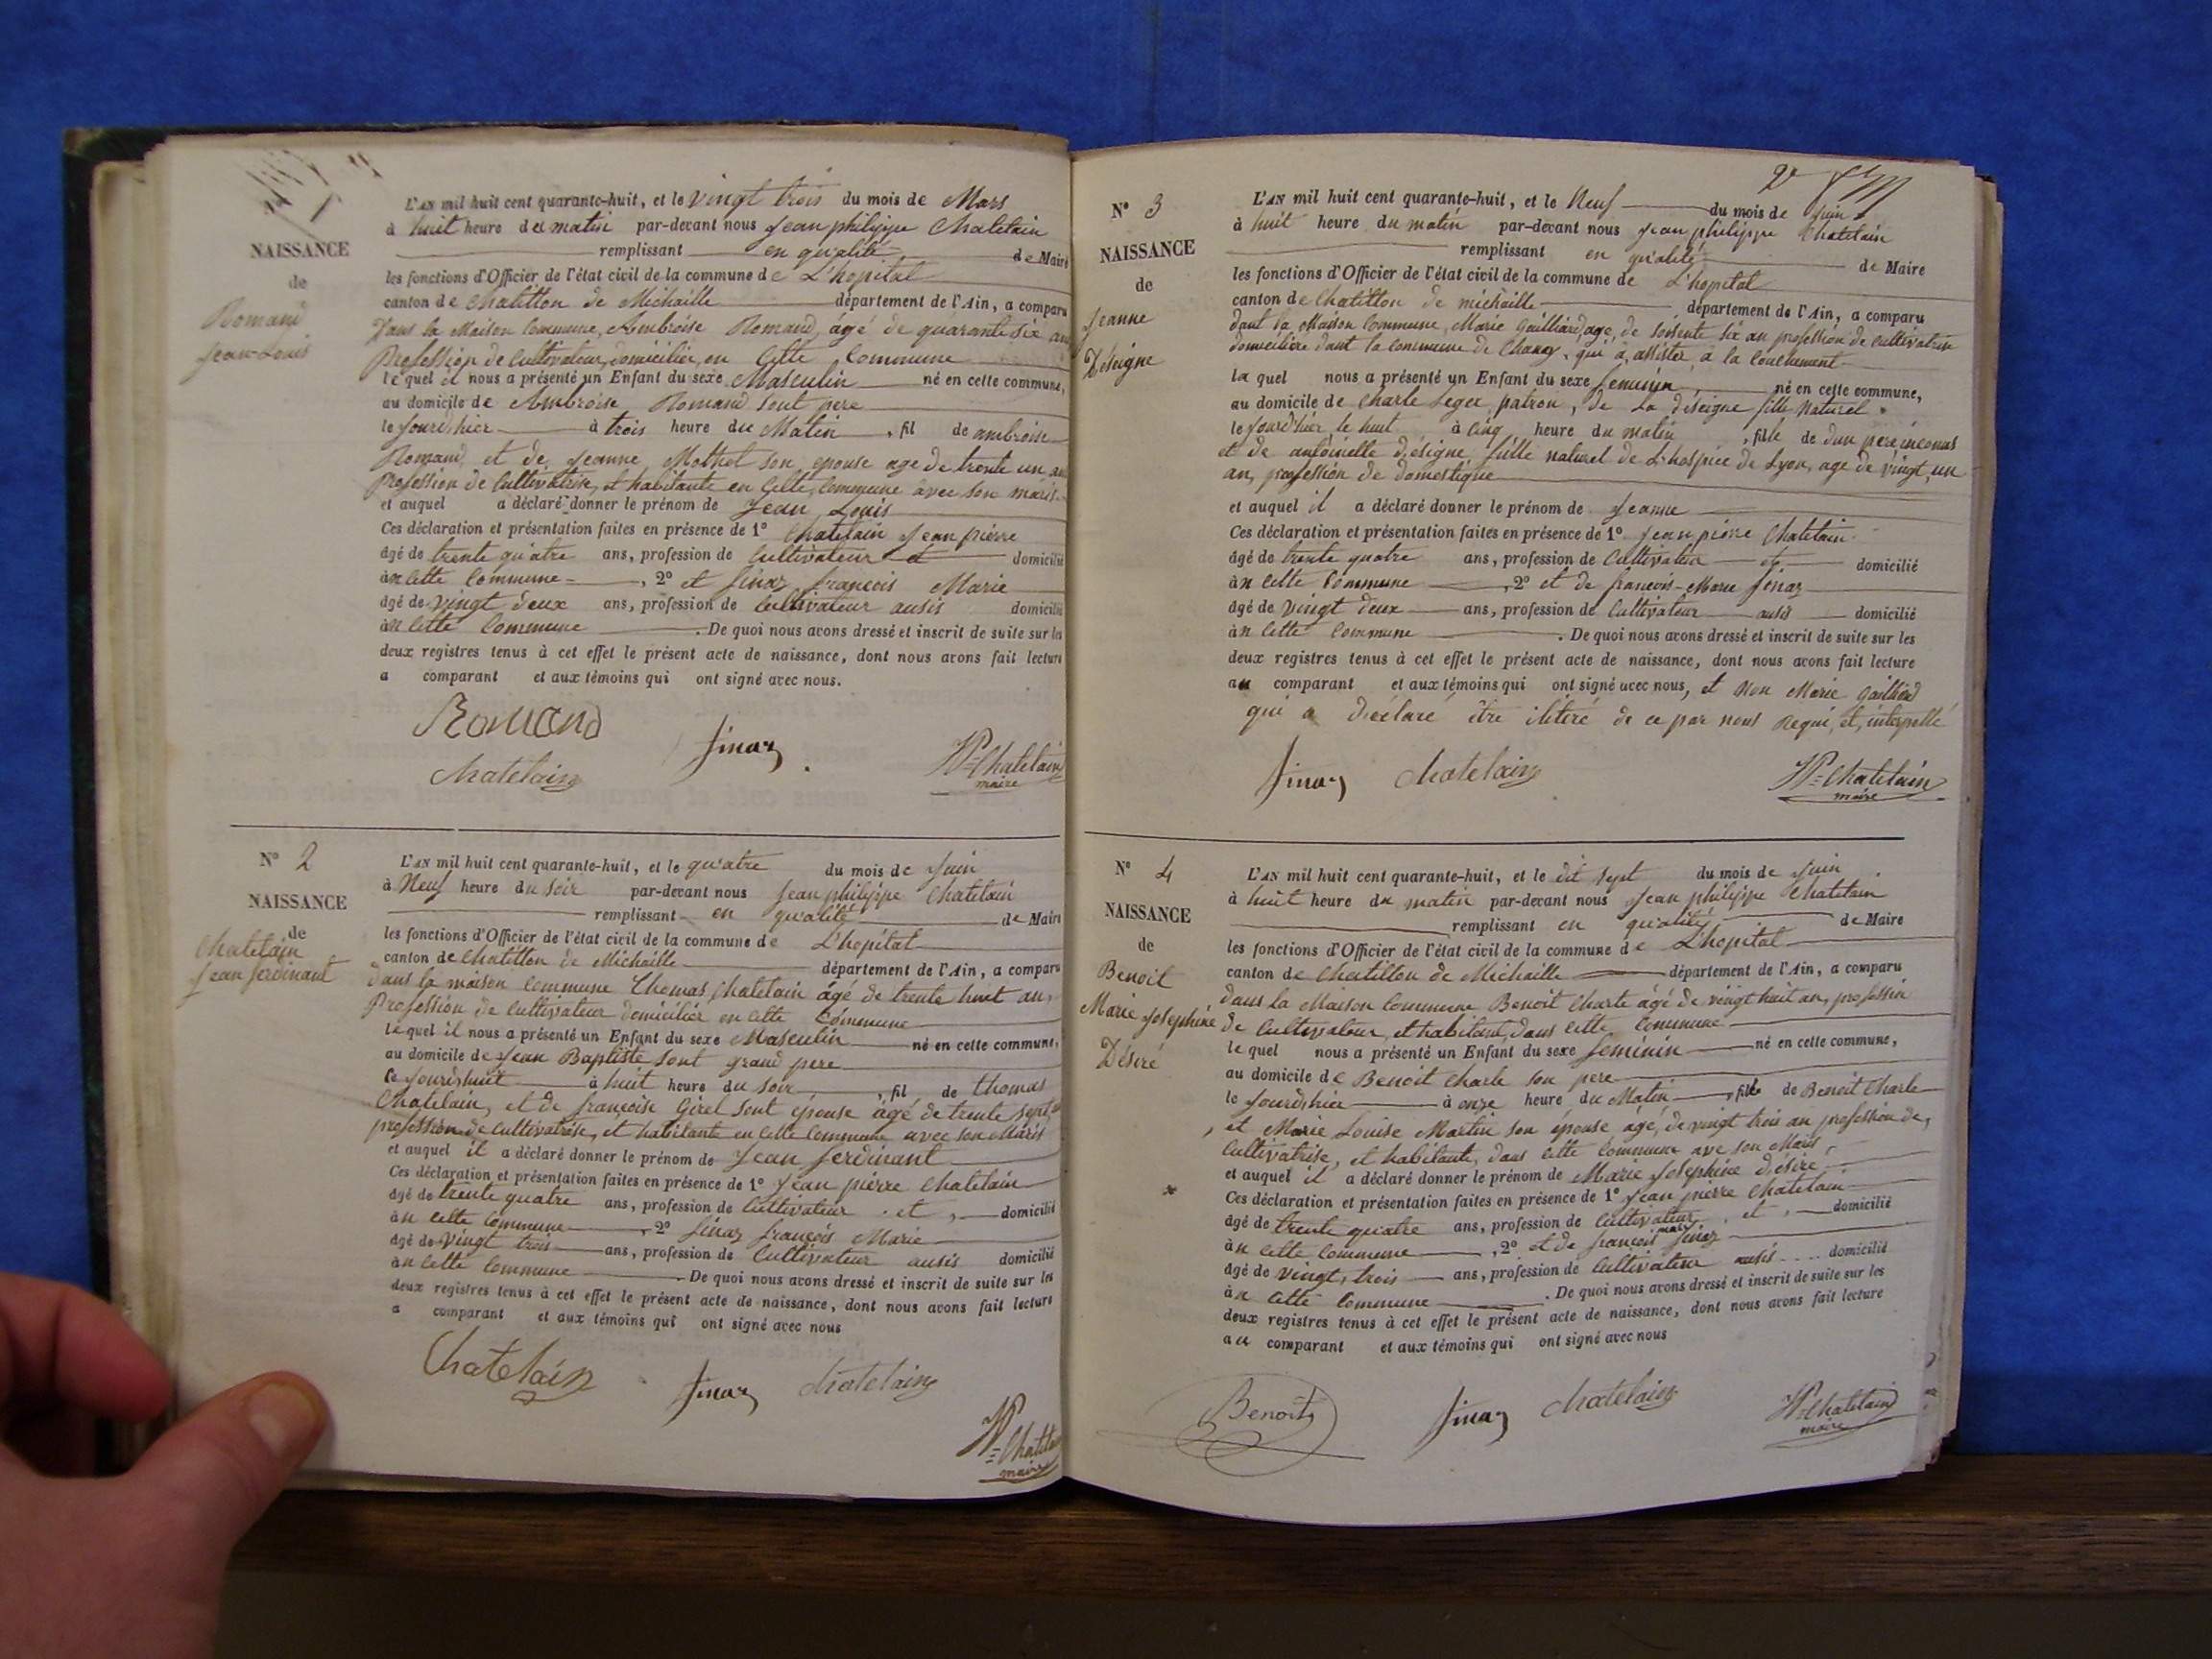 NAISSANCE
de
Romand
Jean-Louis
L'AN mil huit cent quarante-huit, et le vingt trois du mois de Mars
à huit heure du matin par-devant nous Jean philippe Chatelain
remplissant en qu'alité de Maire
les fonctions d'Officier de l'état civil de la commune de L'hopital
canton de Chatillon de Michaille département de l'Ain, a comparu
Dans la Maison Commune, Ambroise Romand, âgé de quarante six an
Profession de Cultivateur, domicilier, en Cette Commune
le quel il nous a présenté un Enfant du sexe Masculin né en cette commune,
au domicile de Ambroise Romand sont pere
le jourd'hier à trois heure du Matin, fil de ambroise
Romand, et de Jeanne Mathet son epouse age de trente un an
Profession de Cultivatrise, et habitante en Cette Commune avec son maris
et auquel a déclaré donner le prénom de Jean Louis
Ces déclaration et présentation faites en présence de 1° Chatelain Jean pierre
âgé de trente qu'atre ans, profession de Cultivateur et domicilié
àn Cette Commune, 2° et Jinaz françois Marie
âgé de vingt deux ans, profession de Cultivateur ausis domicilié
àn Cette Commune. De quoi nous avons dressé et inscrit de suite sur les
deux registres tenus à cet effet le présent acte de naissance, dont nous avons fait lecture
a comparant et aux témoins qui ont signé avec nous.
Romand
Jinaz
Chatelain
JP=Chatelain
maire
N° 2
NAISSANCE
de
Chatelain
Jean ferdinant
L'AN mil huit cent quarante-huit, et le qu'atre du mois de Juin
à Neuf heure du soir par-devant nous Jean philippe Chatelain
remplissant en qu'alité de Maire
les fonctions d'Officier de l'état civil de la commune de L'hopital
canton de Chatillon de Michaille département de l'Ain, a comparu
Dans la maison Commune Thomas Chatelain âgé de trente huit an,
Profession de Cultivateur domicilier en Cette Commune
le quel il nous a présenté un Enfant du sexe Masculin né en cette commune,
au domicile de Jean Baptiste sont grand pere
le jourd'huit à huit heure du soir, fil de thomas
Chatelain, et de françoise Girel sont épouse âgé de trente sept an
profession de Cultivatrise, et habitante en Cette Commune avec son Maris
et auquel il a déclaré donner le prénom de Jean ferdinant
Ces déclaration et présentation faites en présence de 1° Jean pierre Chatelain
âgé de trente quatre ans, profession de Cultivateur. et, domicilié
àn Cette Commune, 2° Jinaz françois Marie
âgé de vingt trois ans, profession de Cultivateur ausis domicilié
àn Cette Commune. De quoi nous avons dressé et inscrit de suite sur les
deux registres tenus à cet effet le présent acte de naissance, dont nous avons fait lecture
a comparant et aux témoins qui ont signé avec nous
Chatelain
Jinaz
Chatelain
JP=Chatelain
maire
2e
N° 3
NAISSANCE
de
Jeanne
Déseigne
L'AN mil huit cent quarante-huit, et le Neuf du mois de Juin
à huit heure du matin par-devant nous Jean philippe Chatelain
remplissant en qu'alité de Maire
les fonctions d'Officier de l'état civil de la commune de L'hopital
canton de Chatillon de michaille département de l'Ain, a comparu
dant la Maison Commune, Marie Gailliard, age, de soisente six an profession de Cultivatrise
domicilière dant la Commune de Chanay, qui a, assister, a la Couchement
la quel nous a présenté un Enfant du sexe feminin, né en cette commune,
au domicile de Charle Leger patron, de La déseigne fille Naturel.
le jourd'hier le huit à Cinq heure du matin, fille de dun pere inconus
et de antoinette déseigne, fille naturel de L'hospice de Lyon, age de vingt, un
an, profession de domestique
et auquel il a déclaré donner le prénom de Jeanne
Ces déclaration et présentation faites en présence de 1° Jean pierre Chatelain
âgé de trente quatre ans, profession de Cultivateur et domicilié
àn Cette Commune, 2° et de francois-Marie Jinaz
âgé de vingt deux ans, profession de Cultivateur ausis domicilié
àn Cette Commune. De quoi nous avons dressé et inscrit de suite sur les
deux registres tenus à cet effet le présent acte de naissance, dont nous avons fait lecture
au comparant et aux témoins qui ont signé avec nous, et Non Marie Gailliard
qui a Déclaré être iliteré de ce par nous Requi, et, interpellé
Jinaz
Chatelain
JP=Chatelain
maire
N° 4
NAISSANCE
de
Benoit
Marie Josephine
Désiré
L'AN mil huit cent quarante-huit, et le dit sept du mois de Juin
à huit heure du matin par-devant nous Jean philippe Chatelain
remplissant en qu'alité de Maire
les fonctions d'Officier de l'état civil de la commune de L'hopital
canton de Chatillon de Michaille département de l'Ain, a comparu
dans la Maison Commune Benoit Charle âgé de vingt huit an, profession
de Cultivateur, et habitant, dans Cette Commune
le quel nous a présenté un Enfant du sexe feminin né en cette commune,
au domicile de Benoit Charle son pere
le jourd'hier à onze heure du Matin, fille de Benoit Charle
et Marie Louise Martin son épouse âgé, de vingt trois an profession de,
Cultivatrise, et habitante, dans Cette Commune ave son Maris,
et auquel il a déclaré donner le prénom de Marie Josephine désiré
Ces déclaration et présentation faites en présence de 1° Jean pierre Chatelain
âgé de trente qu'atre ans, profession de Cultivateur, et, domicilié
àn Cette Commune, 2° et de françois marie Jinaz
âgé de vingt, trois ans, profession de Cultivateur ausis domicilié
àn Cette Commune. De quoi nous avons dressé et inscrit de suite sur les
deux registres tenus à cet effet le présent acte de naissance, dont nous avons fait lecture
au comparant et aux témoins qui ont signé avec nous
Benoit
Jinaz
Chatelain
JP=Chatelain
maire